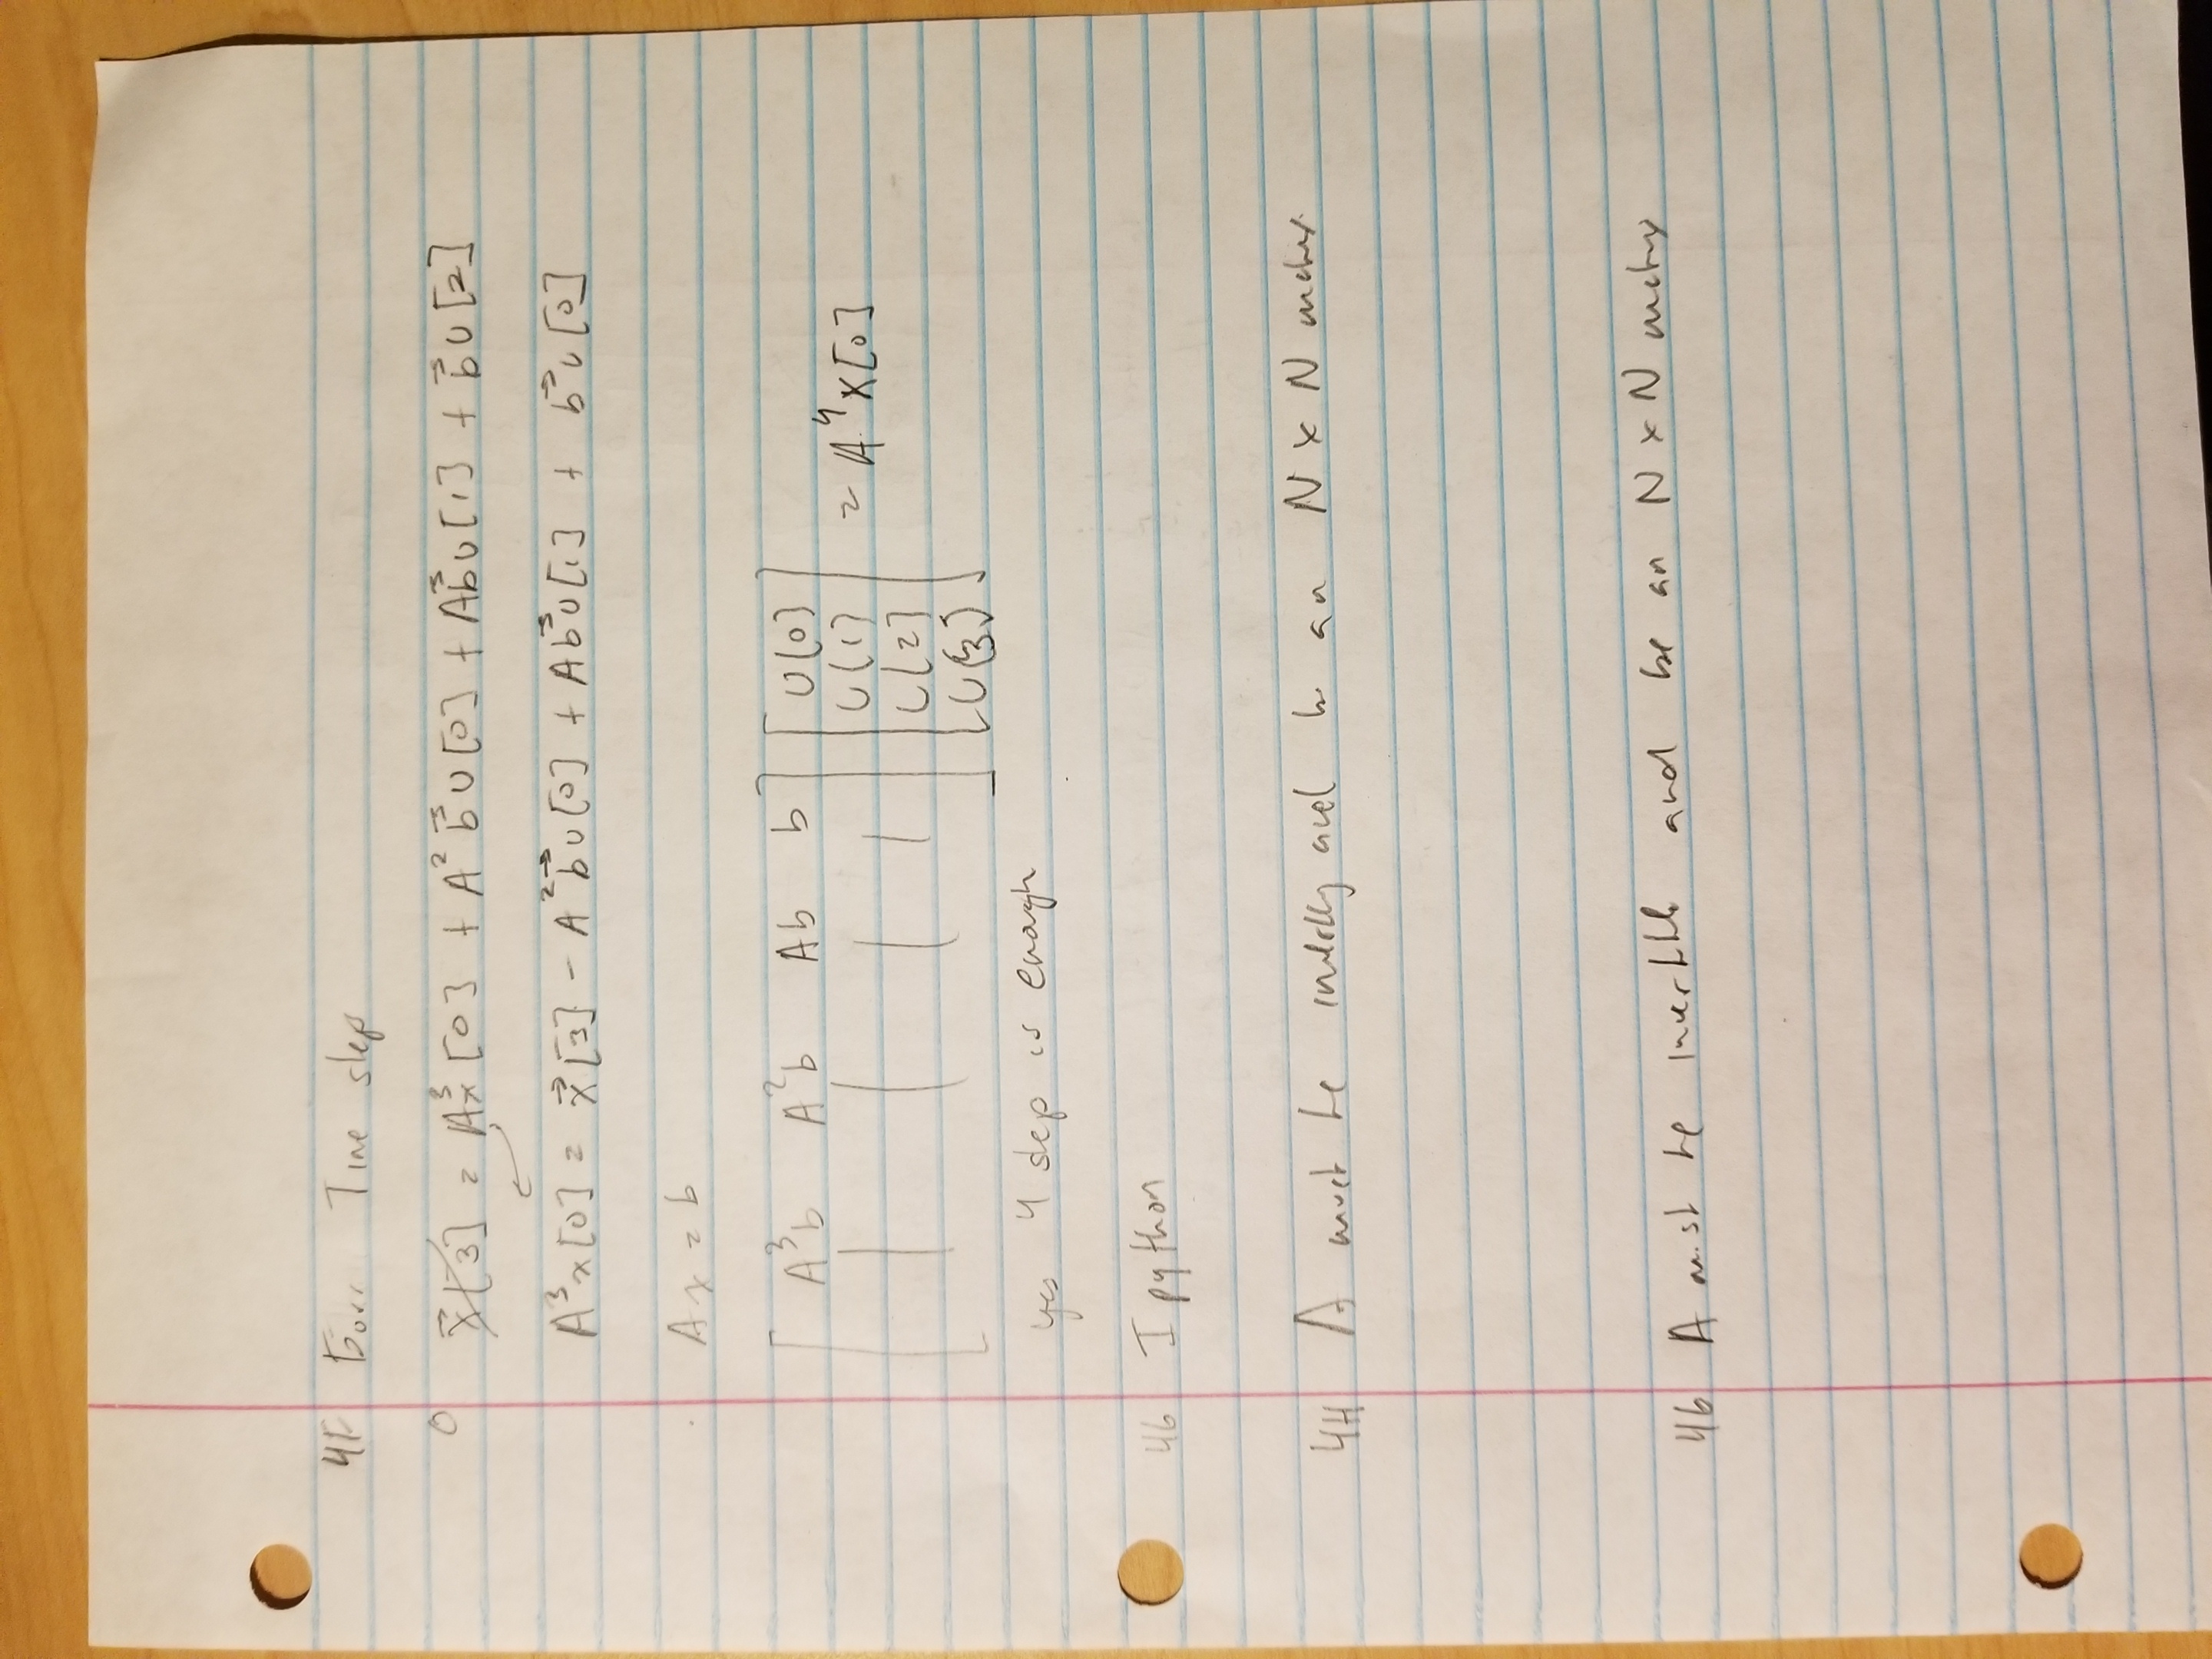 4F Four Time step
0 x⃗[3] = A³x⃗[0] + A²b⃗u[0] + Ab⃗u[1] + b⃗u[2]
A³x[0] = x⃗[3] - A²b⃗u[0] + Ab⃗u[1] + b⃗u[0]
Ax = b
[A³b A²b Ab b] [U(0) U(1) U(2) U(3)] = A⁴x[0]
yes 4 step is enough
4G Ipython
4H A must be and be an N x N matrix
4G A must be invertible and be an N x N matrix